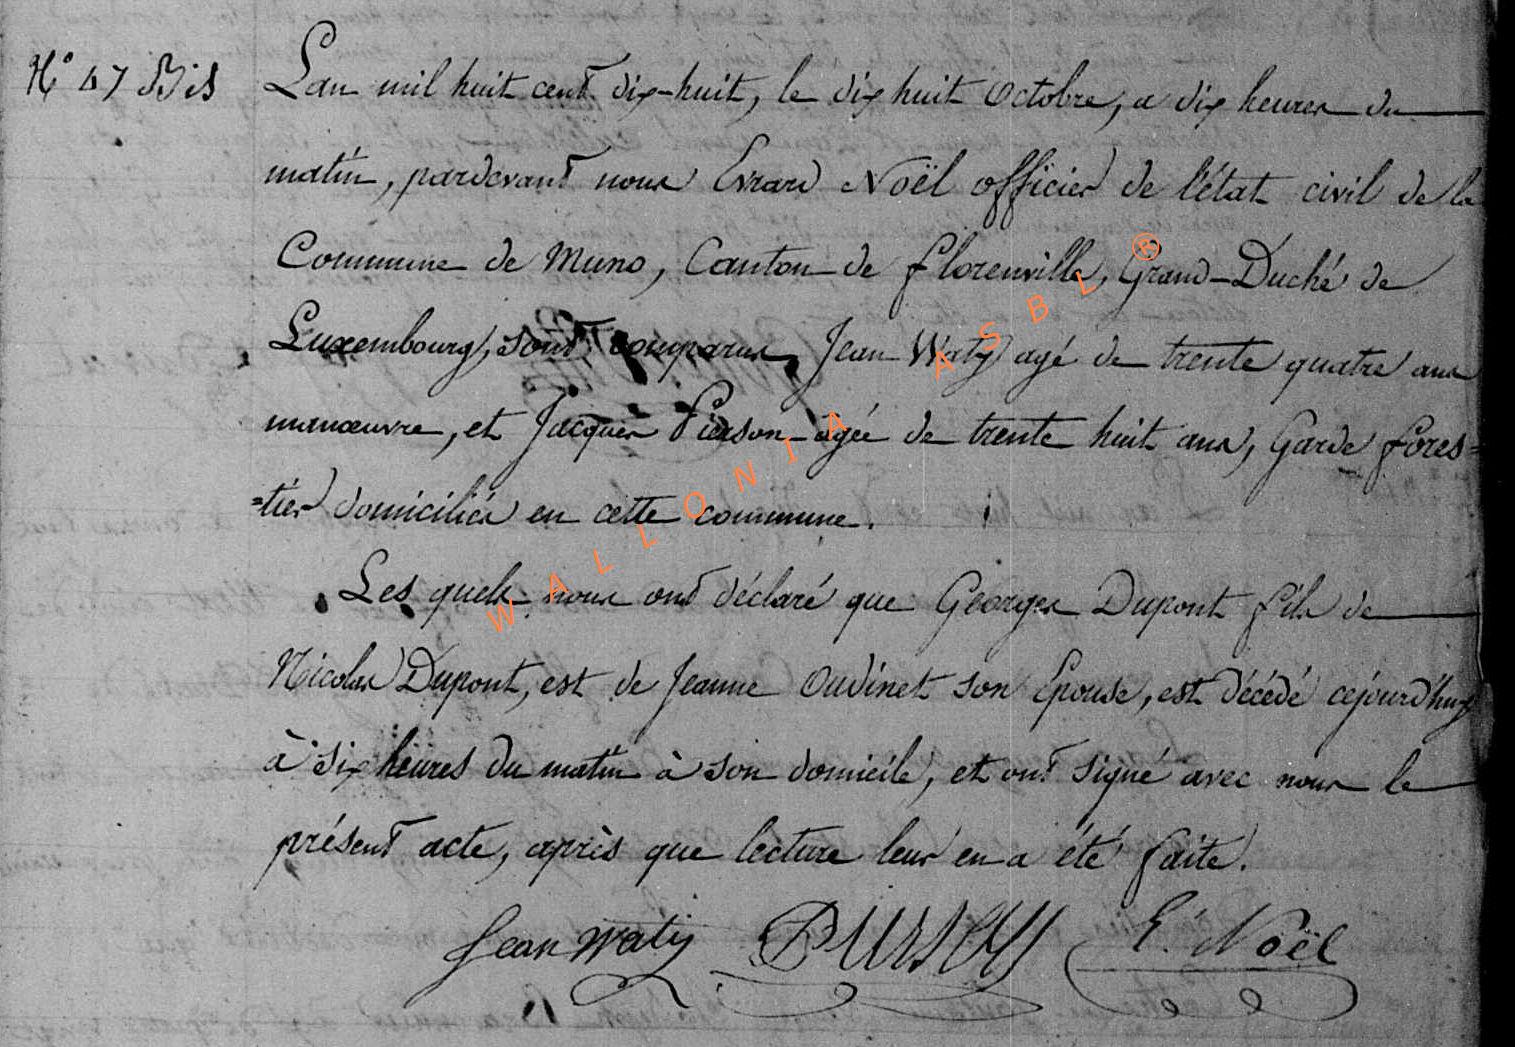 N.° 47 Bis
L'an mil huit cent dix-huit, le dix huit Octobre, a dix heures du
matin, pardevant nous Evrard Noël officier de l'état civil de la
Commune de Muno, Canton de Florenville, Grand-Duché de
Luxembourg, sont comparus, Jean Waty agé de trente quatre ans
manœuvre, et Jacques Pierson agée de trente huit ans, Garde fores=
=tier domiciliés en cette commune.
Les quels nous ont déclaré que Georges Dupont fils de
Nicolas Dupont, est de Jeanne Oudinet son Epouse, est décédé cejourd'huy
à six heures du matin à son domicile, et ont signé avec nous le
présent acte, après que lecture leur en a été faite.
Jean Watÿ E. Noël
WALLONIA ASBL ®